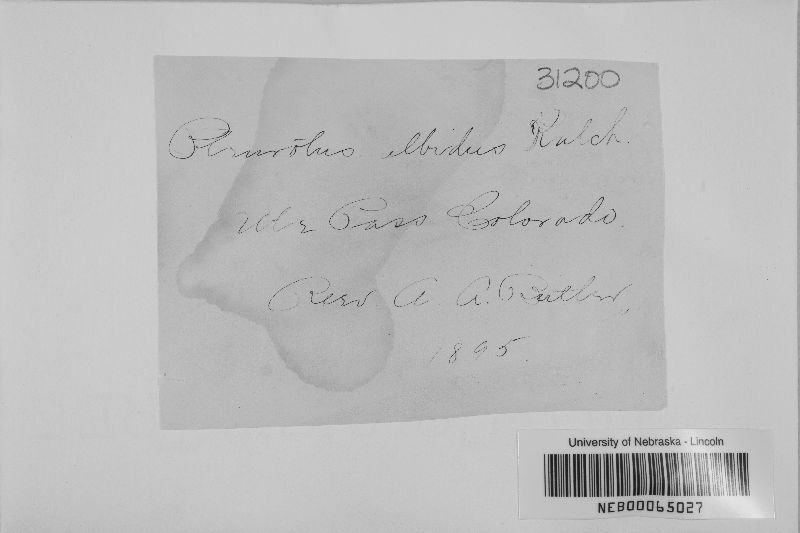 31200
Pleurotus albidus Kalch.
Ute Pass Colorado.
Rev. A. A.
1895.
University of Nebraska - Lincoln
NEB00065027